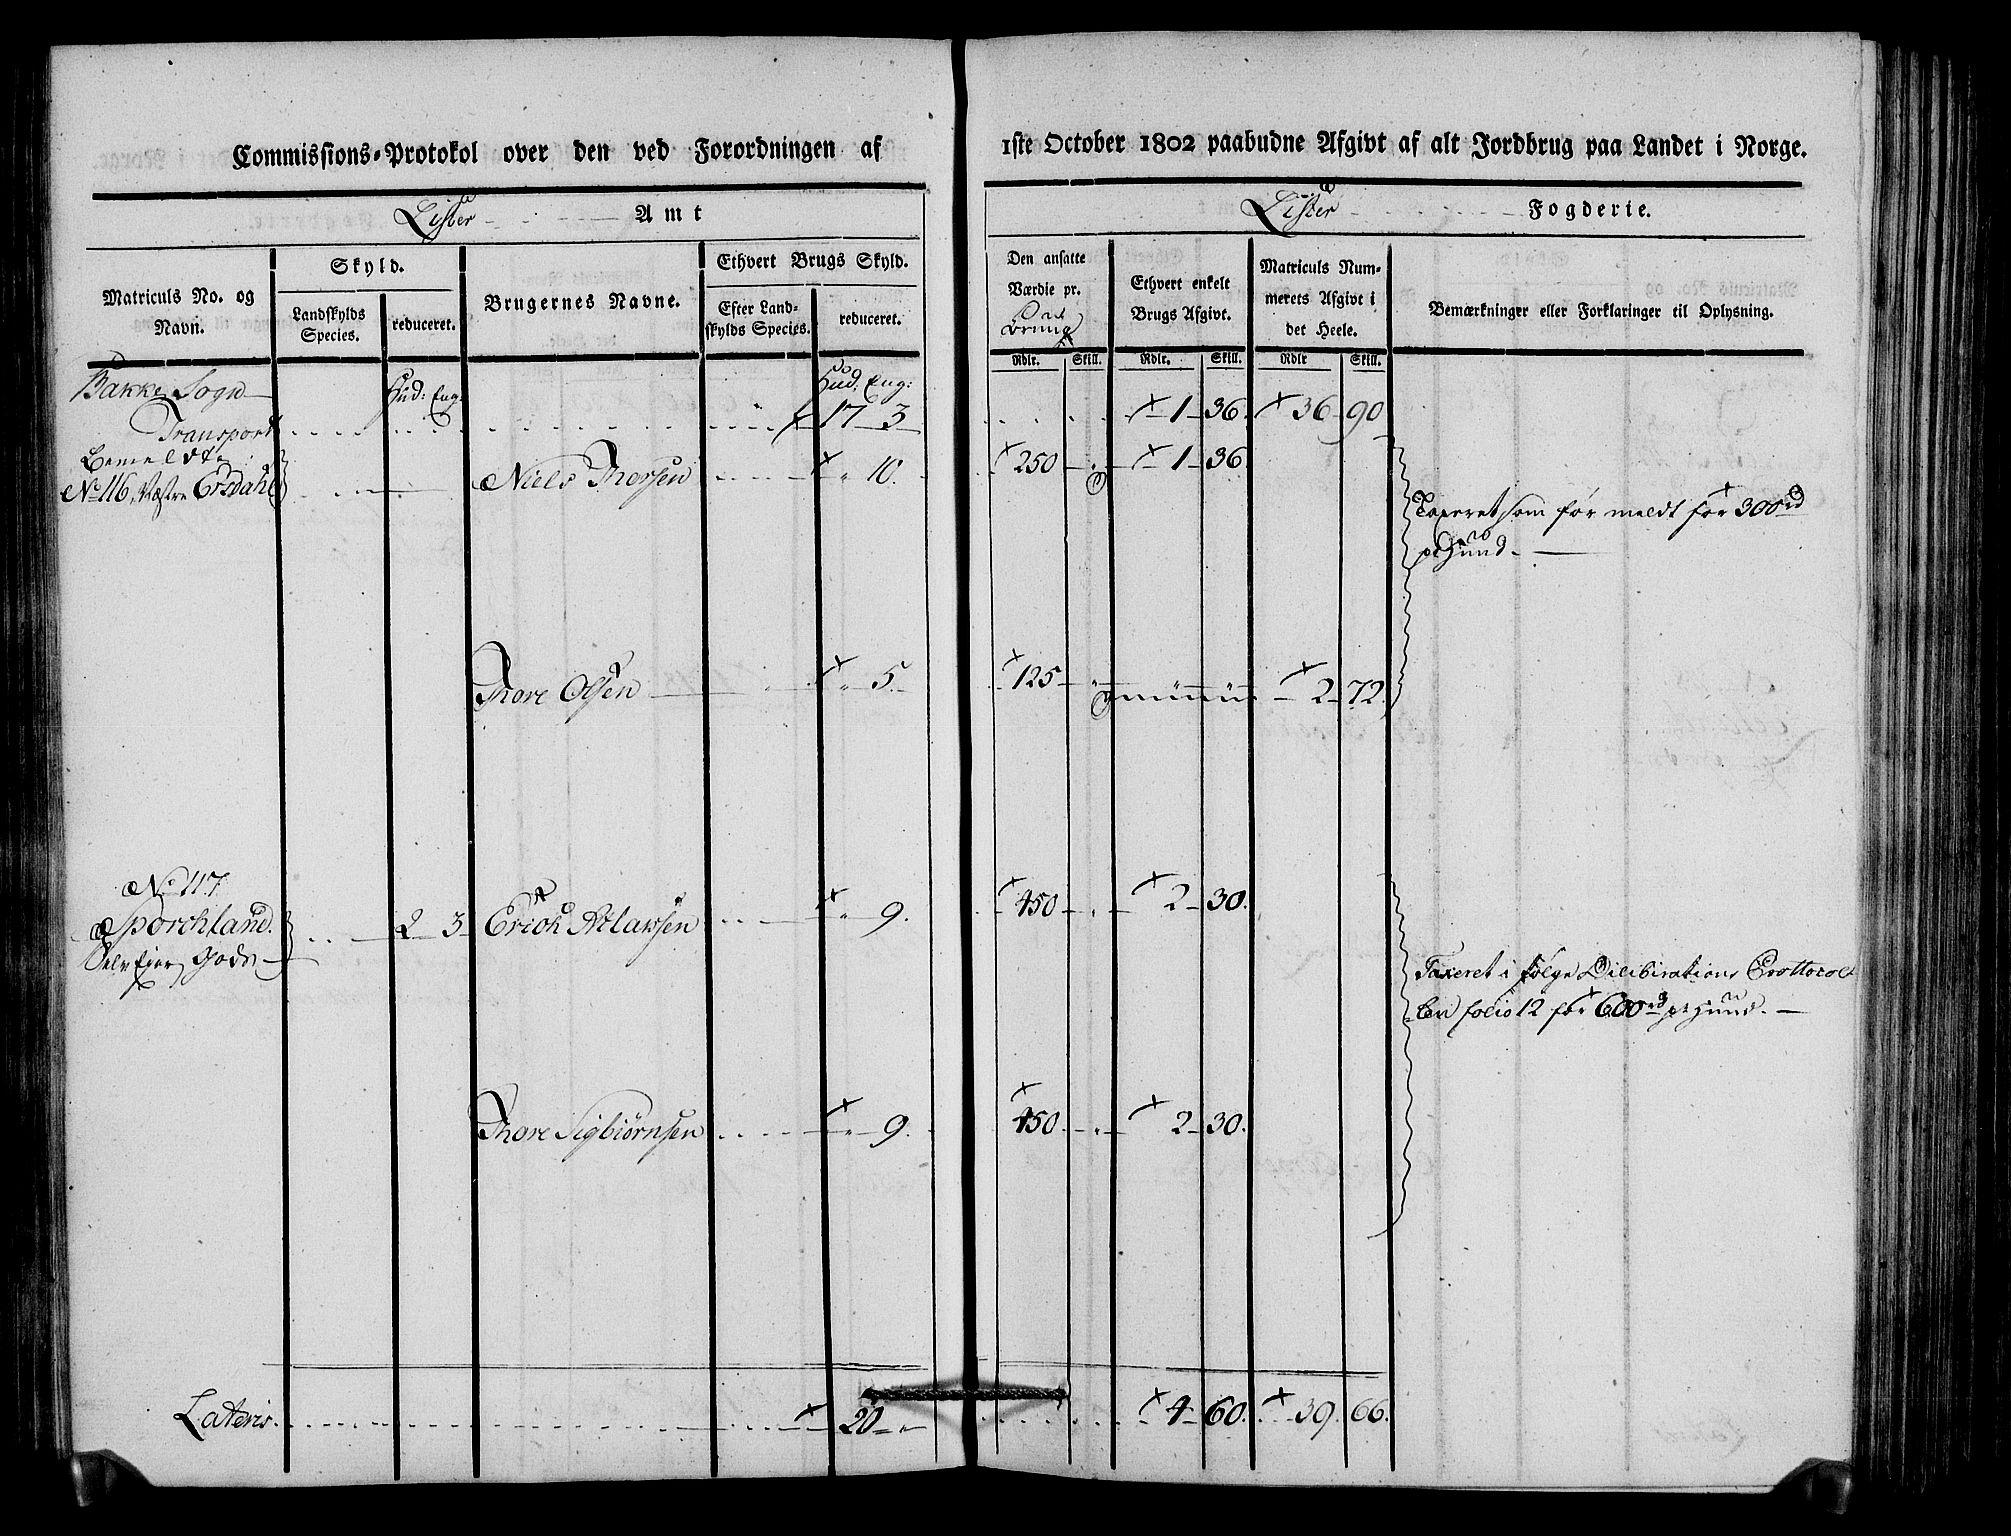 Commissions-Protokol over den ved Forordningen af
1ste October 1802 paabudne Afgivt af alt Jordbrug paa Landet i Norge.
Lister Amt
Lister Fogderie.
Matriculs No. og Navn.
Skyld.
Landskylds Species.
reduceret.
Brugernes Navne.
Ethvert Brugs Skyld.
Efter Landskylds Species.
reduceret.
Den ansatte Værdie pr.
Rdlr. Skill.
Ethvert enkelt Brugs Afgivt.
Rdlr. Skill.
Matriculs Nummerets Afgivt i det Heele.
Rdlr Skill.
Bemærkninger eller Forklaringer til Oplysning.
Bakke Sogn Hud: Eng: Hud: Eng:
Transport 17 3 1 36. 36 90
Bemeldte
No 116, Væstre Erzdahl Niels Thorsen " 10. 250 " 1 36.
Taxeret som før meldt for 300 rd
pr Huud.
Thore Olsen " 5. 125 " 2 72.
No 117
Sporchland. 2 3 Erich Atlaksen " 9. 450 " 2 30.
Selv Eier Gods
Taxeret i følge Dilibirations Prottocol-
len folio 12 for 600 rd pr Huud.
Thore Sigbiørnsen " 9. 450 " 2 30.
Lateris. 20 " 4 60. 39. 66.